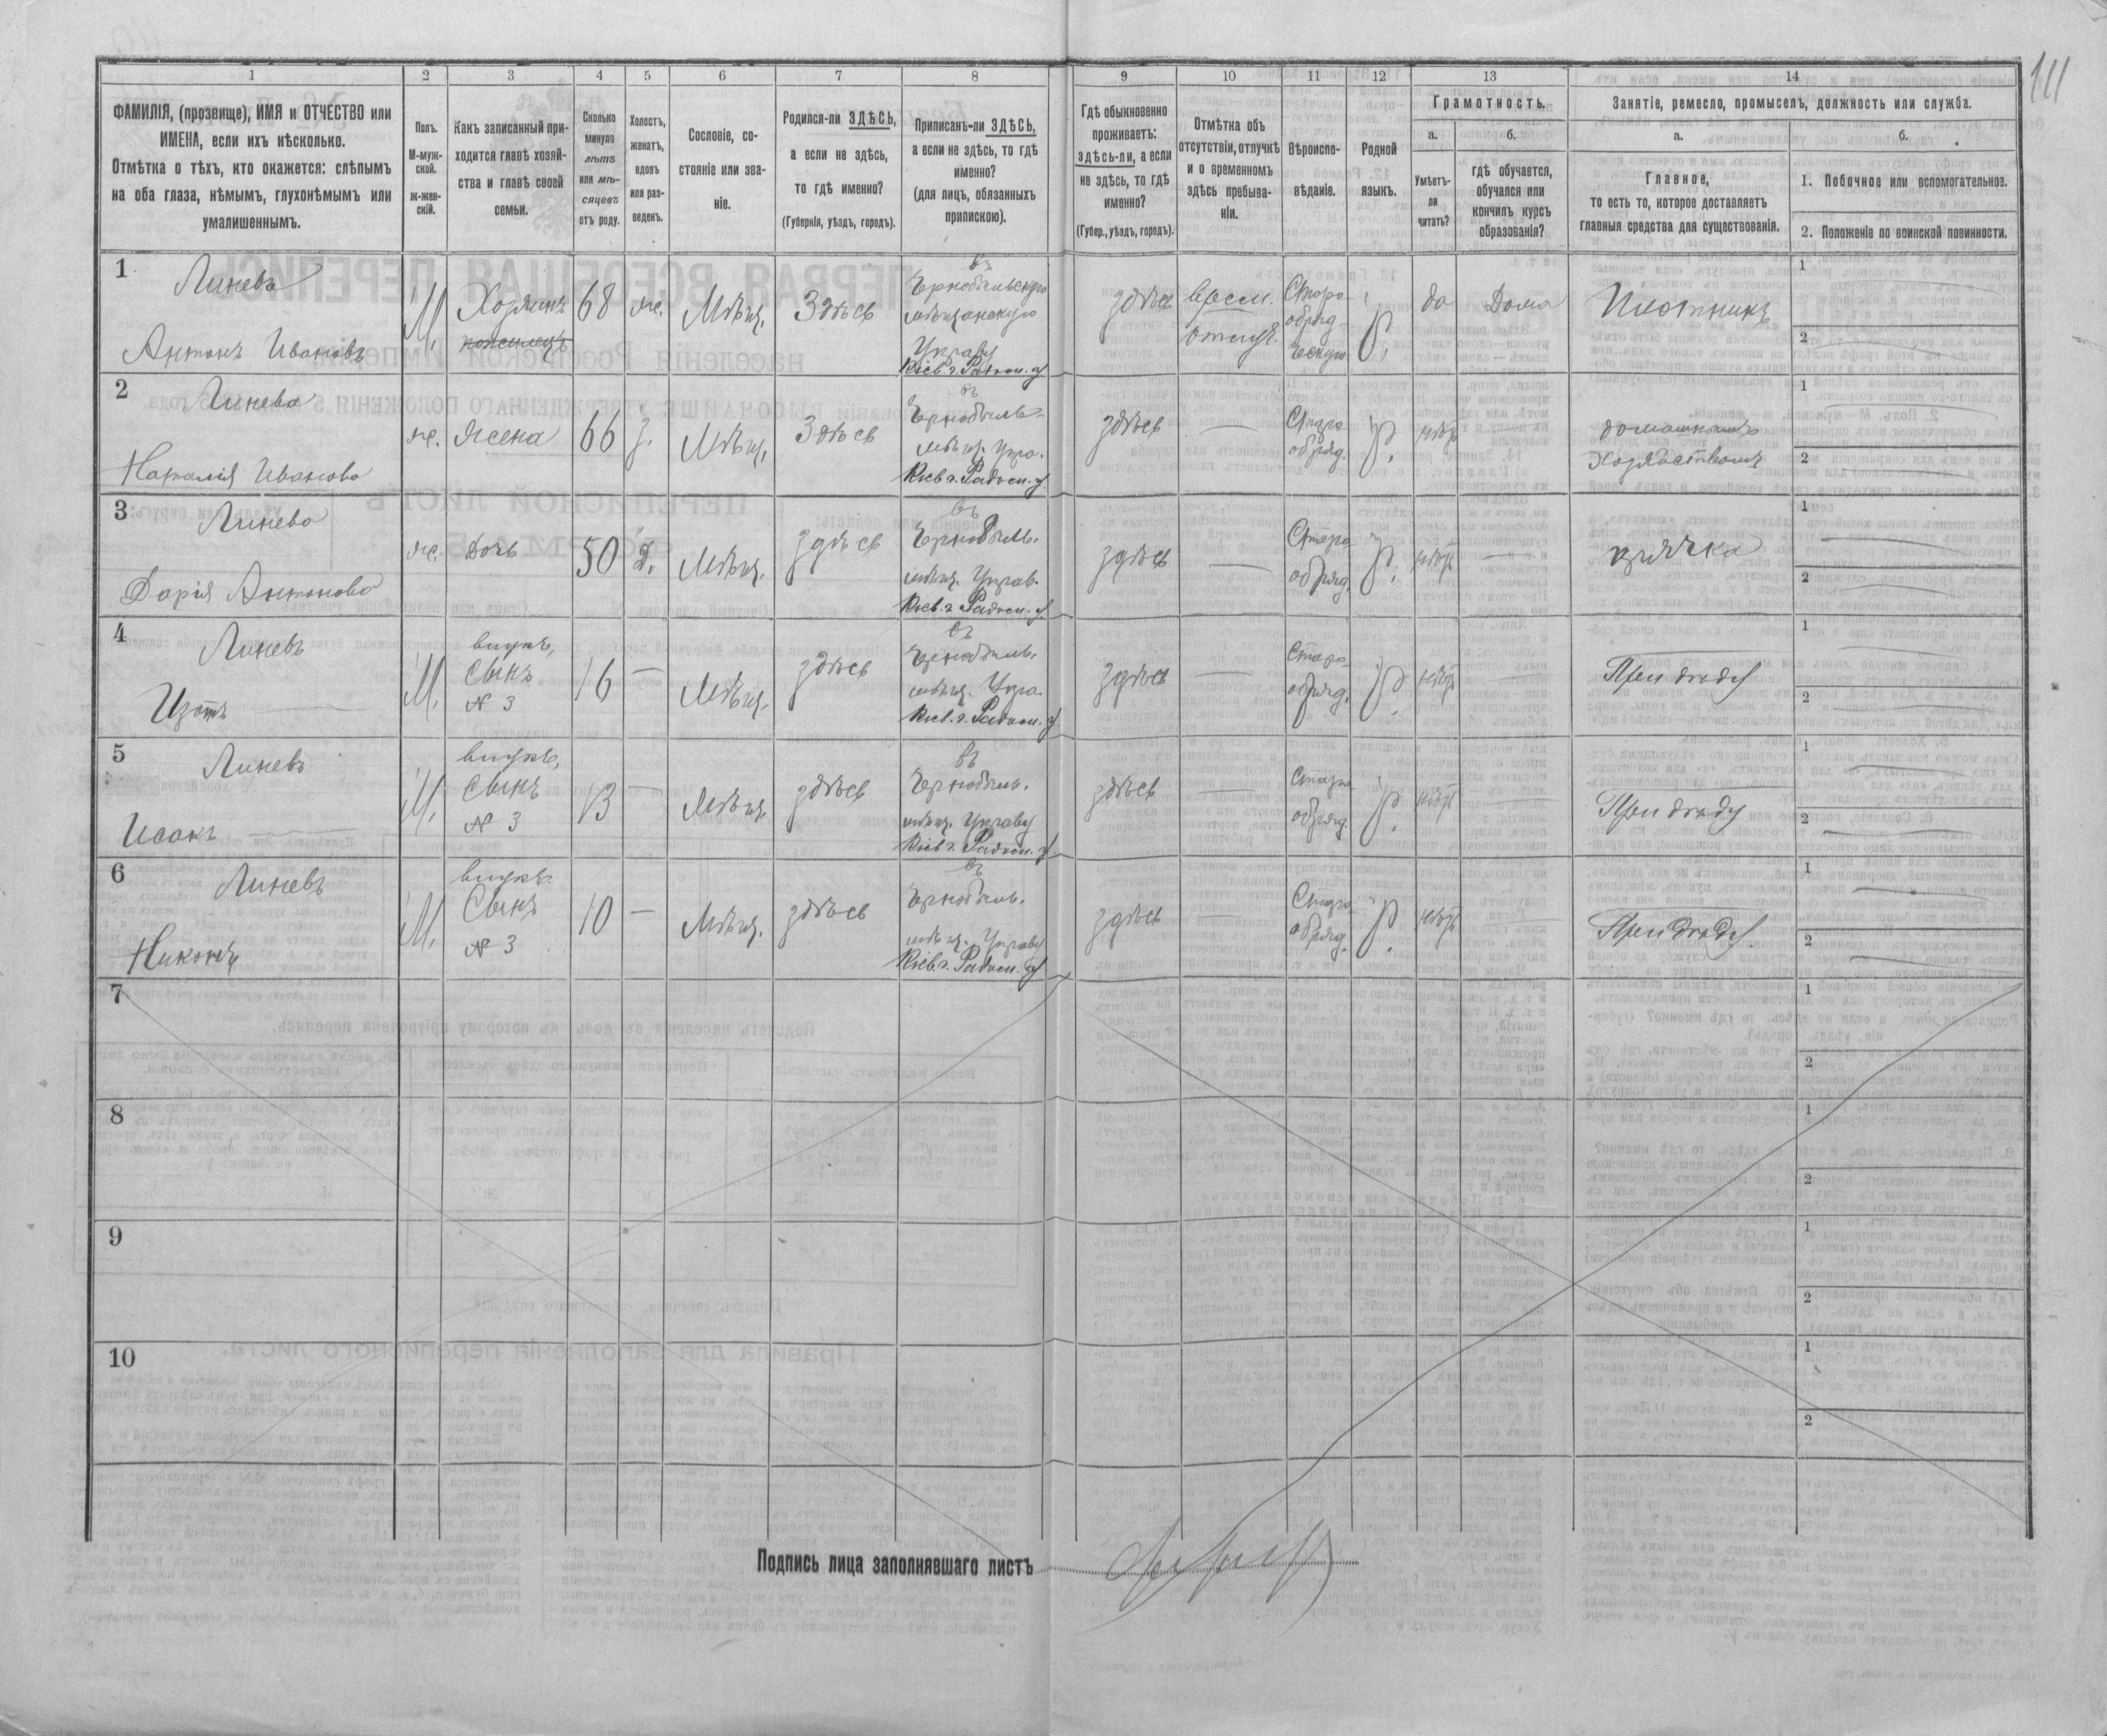 111
1 2 3 4 5 6 7 8 9 10 11 12 13 14
ФАМИЛІЯ, (прозвище), ИМЯ и ОТЧЕСТВО или
ИМЕНА, если ихъ нѣсколько.
Отмѣтка о тѣхъ, кто окажется: слѣпымъ
на оба глаза, нѣмымъ, глухонѣмымъ или
умалишеннымъ.
Полъ.
М-муж-
ской.
ж-жен-
скій.
Какъ записанный при-
ходится главѣ хозяй-
ства и главѣ своей
семьи.
Сколько
минуло
лѣтъ
или мѣ-
сяцевъ
отъ роду.
Холостъ,
женатъ,
вдовъ
или раз-
веденъ.
Сословіе, со-
стояніе или зва-
ніе.
Родился-ли ЗДѢСЬ,
а если не здѣсь,
то гдѣ именно?
(Губернія, уѣздъ, городъ).
Приписанъ-ли ЗДѢСЬ,
а если не здѣсь, то гдѣ
именно?
(для лицъ, обязанныхъ
припискою).
Гдѣ обыкновенно
проживаетъ:
здѣсь-ли, а если
не здѣсь, то гдѣ
именно?
(Губер., уѣздъ, городъ).
Отмѣтка объ
отсутствіи, отлучкѣ
и о временномъ
здѣсь пребыва-
ніи.
Вѣроиспо-
вѣданіе.
Родной
языкъ.
Грамотность.
а.
Умѣетъ-
ли
читать?
б.
гдѣ обучается,
обучался или
кончилъ курсъ
образованія?
Занятіе, ремесло, промыселъ, должность или служба.
а.
Главное,
то есть то, которое доставляетъ
главныя средства для существованія.
б.
1. Побочное или вспомогательное.
2. Положеніе по воинской повинности.
1
Линевъ
Антонъ Ивановъ
М.
Хозяинъ
68
же.
Мѣщ.
Здѣсь
въ
Чернобыльскую
мѣщанскую
Управу
Кіев. г. Радом. у
здѣсь
врем.
отлуч.
Старо-
обряд-
ческую
р.
да
Дома
Плотникъ
1
2
2
Линева
Наталія Иванова
же.
Жена
66
з.
Мѣщ.
Здѣсь
въ
Чернобыль.
мѣщ. Упра.
Кіев. г. Радом. у
здѣсь
—
Старо
обряд.
р.
нѣтъ
домашнимъ
хозяйствомъ
1
2
3
Линева
Дарія Антонова
же.
Дочь
50
Д.
Мѣщ.
здѣсь
въ
Чернобыль.
мѣщ. Управ.
Кіев. г. Радом. у
здѣсь
—
Старо
обряд.
р.
нѣтъ
—
1
2
4
Линевъ
Изотъ —
М.
внукъ,
Сынъ
№ 3
16
—
Мѣщ.
здѣсь
въ
Чернобыль.
мѣщ. Упра.
Кіев. г. Радом. у
здѣсь
—
Старо
обряд.
р.
нѣтъ
—
При дѣду
1
2
5
Линевъ
Исакъ —
М.
внукъ,
Сынъ
№ 3
13
—
Мѣщ.
здѣсь
въ
Чернобыль.
мѣщ. Управу
Кіев. г. Радом. у
здѣсь
—
Старо
обряд.
р.
нѣтъ
—
При дѣду
1
2
6
Линевъ
Никонъ
М.
внукъ
Сынъ
№ 3
10
—
Мѣщ.
здѣсь
въ
Чернобыль.
мѣщ. Управу
Кіев. г. Радом. у
здѣсь
—
Старо
обряд.
р.
нѣтъ
При дѣду
1
2
7
1
2
8
1
2
9
1
2
10
1
2
Подпись лица заполнявшаго листъ